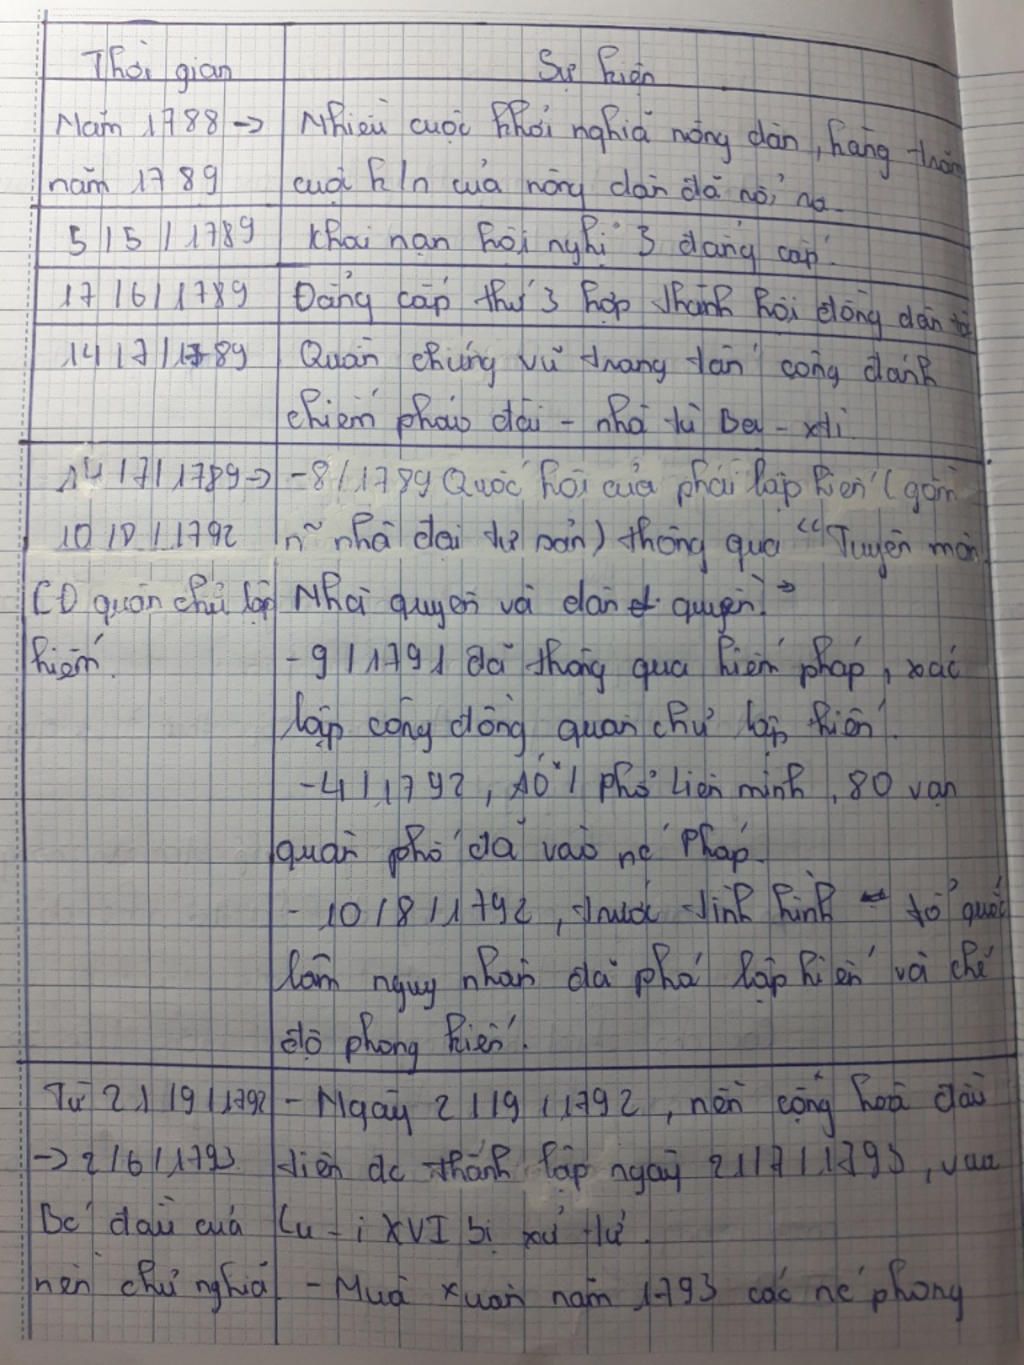 Thời gian
Sự kiện
Năm 1788 → Nhiều cuộc khởi nghĩa nông dân, hàng trăm
năm 1789 cuộc k/n của nông dân đã nổi ra.
5/5/1789 Khai mạn hội nghị 3 đẳng cấp.
17/6/1789 Đẳng cấp thứ 3 họp thành hội đồng dân tộc
14/7/1789 Quần chúng vũ trang tấn công đánh
chiếm pháo đài - nhà tù Ba-xti.
14/7/1789 → - 8/1789 Quốc hội của phái lập hiến (gồm
10/8/1792 n~ nhà đại tư sản) thông qua "Tuyên môn
CĐ quân chủ lập Nhân quyền và dân quyền"
hiến. - 9/1791 đã thông qua hiến pháp, xác
lập công đồng quân chủ lập hiến.
- 4/1792, Áo / phổ liên minh, 80 vạn
quân phổ đã vào nc Pháp.
- 10/8/1792, trước tình hình tổ quốc
lâm nguy nhân dã phá lập hiến và chế
độ phong kiến.
Từ 21/9/1792 - Ngày 21/9/1792, nền cộng hoà đầu
→ 2/6/1793 tiên đc thành lập ngày 21/7/1793, vua
Bc đầu của Lu-i XVI bị xử tử.
nền chủ nghĩa - Mùa xuân năm 1793 các nc phong